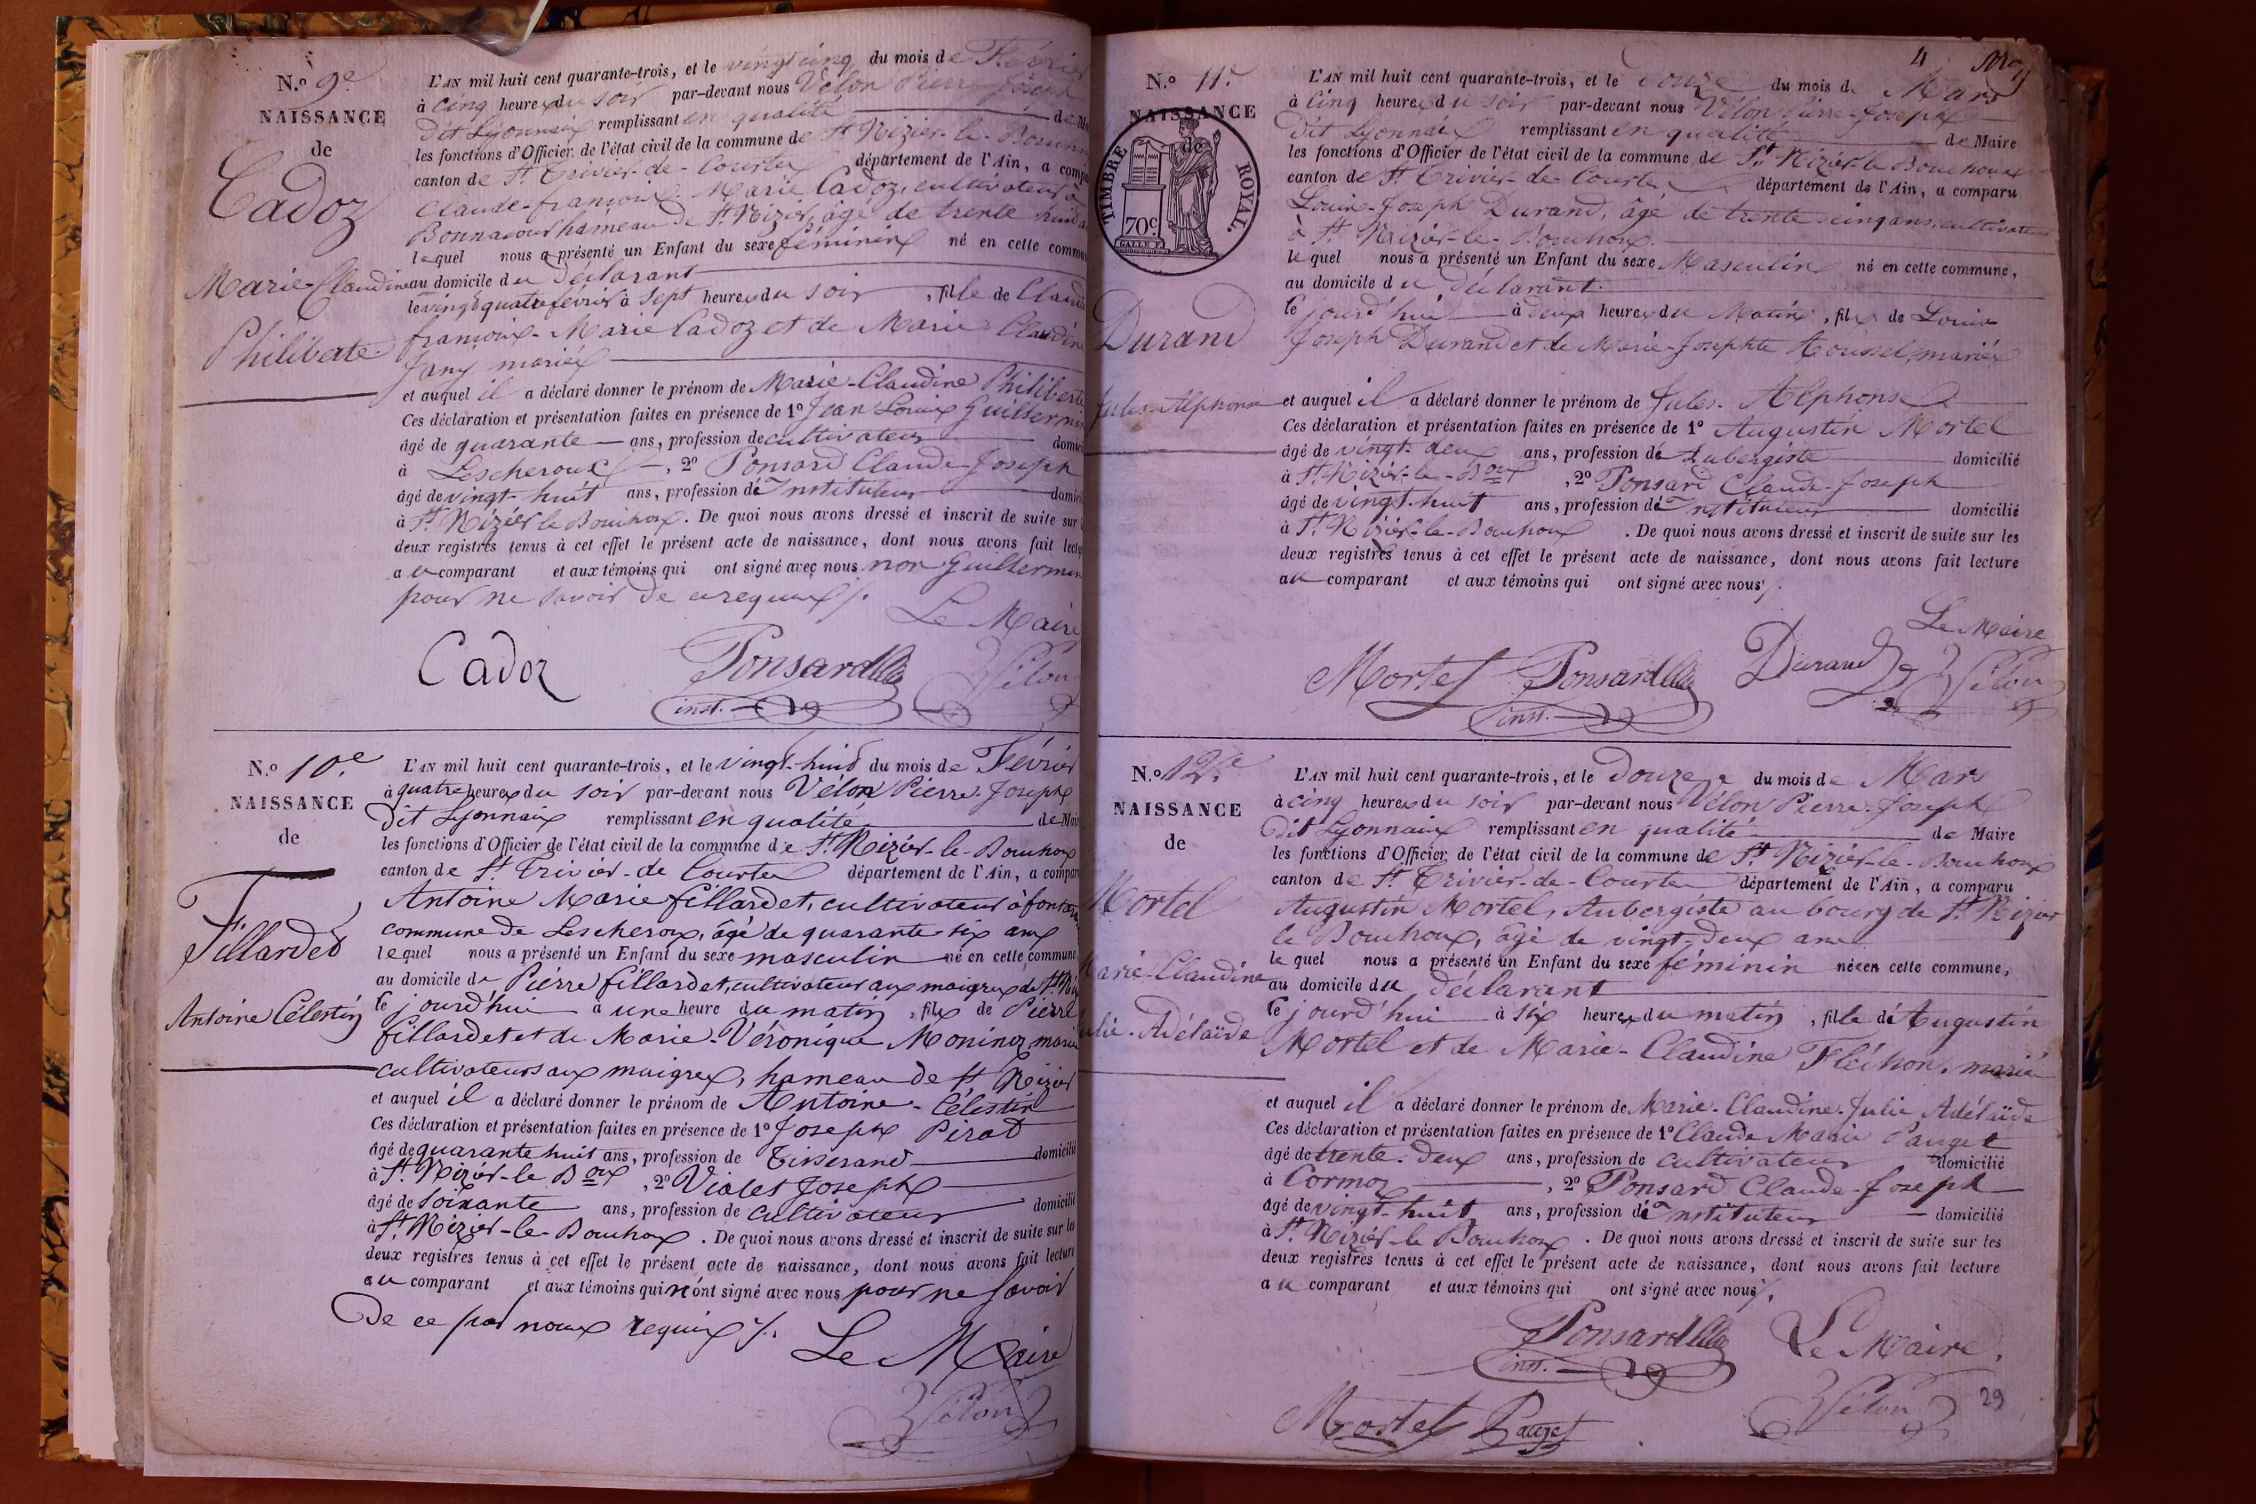 N.o 9e
NAISSANCE
de
Cadoz
Marie-Claudine
Philiberte
L'AN mil huit cent quarante-trois, et le vingt cinq du mois de Février
à cinq heures du soir par-devant nous Vélon Pierre Joseph
dit Lyonnais remplissant en qualité de M
les fonctions d'Officier de l'état civil de la commune de St Nizier-le-Bouchou
canton de St Trivier-de-Courtes département de l'Ain, a compa
Claude-françois Marie Cadoz, cultivateur à
hameau de St Nizier, âgé de trente huit a
lequel nous a présenté un Enfant du sexe féminin né en cette commu
au domicile du déclarant
le vingt quatre février à sept heures du soir, fille de Claude
françois-Marie Cadoz et de Marie Claudine
Jany mariés
et auquel il a déclaré donner le prénom de Marie-Claudine Philiberte
Ces déclaration et présentation faites en présence de 1o Jean Louis Guillermin
âgé de quarante ans, profession de cultivateur domici
à Lescheroux, 2o Ponsard Claude-Joseph
âgé de vingt-huit ans, profession de Instituteur domici
à St Nizier le Bouchoux. De quoi nous avons dressé et inscrit de suite sur l
deux registres tenus à cet effet le présent acte de naissance, dont nous avons fait lectu
au comparant et aux témoins qui ont signé avec nous non Guillermin
pour ne savoir de ce requis
Le Maire
Cadoz Ponsard Vélon
inst.
N.o 10.e
NAISSANCE
de
Fillardet
Antoine Célestin
L'AN mil huit cent quarante-trois, et le vingt-huit du mois de Février
à quatre heures du soir par-devant nous Vélon Pierre-Joseph
dit Lyonnais remplissant en qualité de Mai
les fonctions d'Officier de l'état civil de la commune de St Nizier-le-Bouchoux
canton de St Trivier-de Courtes département de l'Ain, a compar
Antoine Marie fillardet, cultivateur à
commune de Lescheroux, âgé de quarante six ans
lequel nous a présenté un Enfant du sexe masculin né en cette commune
au domicile de Pierre fillardet, cultivateur aux maigres de St Niz
le jourd'hui à une heure du matin, fils de Pierre
fillardet et de Marie-Véronique Moninoz mariés
cultivateurs aux maigres, hameau de St Nizier
et auquel il a déclaré donner le prénom de Antoine-Célestin
Ces déclaration et présentation faites en présence de 1o Joseph Pirat
âgé de quarante huit ans, profession de Tisserand domicilié
à St Nizier-le Boux, 2o Vialet Joseph
âgé de soixante ans, profession de cultivateur domicilié
à St Nizier-le-Bouchoux. De quoi nous avons dressé et inscrit de suite sur les
deux registres tenus à cet effet le présent acte de naissance, dont nous avons fait lecture
au comparant et aux témoins qui n'ont signé avec nous pour ne savoir
de ce par nous requis
Le Maire
Vélon
4
N.o 11.e
NAISSANCE
de
TIMBRE ROYAL.
70c.
Durand
Jules-Alphonse
L'AN mil huit cent quarante-trois, et le douze du mois de Mars
à cinq heures du soir par-devant nous Vélon Pierre-Joseph
dit Lyonnais remplissant en qualité de Maire
les fonctions d'Officier de l'état civil de la commune de St Nizier le Bouchoux
canton de St Trivier-de-Courtes département de l'Ain, a comparu
Louis-Joseph Durand, âgé de trente-cinq ans, cultivateur
à St Nizier-le-Bouchoux.
lequel nous a présenté un Enfant du sexe Masculin né en cette commune,
au domicile du déclarant
le jourd'hui à deux heures du Matin, fils de Louis
Joseph Durand et de Marie-Josephte Roussel, mariés
et auquel il a déclaré donner le prénom de Jules-Alphonse
Ces déclaration et présentation faites en présence de 1o Augustin Mortel
âgé de vingt-deux ans, profession de Aubergiste domicilié
à St Nizier-le-Boux, 2o Ponsard Claude-Joseph
âgé de vingt-huit ans, profession de Instituteur domicilié
à St Nizier-le-Bouchoux. De quoi nous avons dressé et inscrit de suite sur les
deux registres tenus à cet effet le présent acte de naissance, dont nous avons fait lecture
au comparant et aux témoins qui ont signé avec nous
Le Maire
Mortel Ponsard Durand Vélon
inst.
N.o 12.e
NAISSANCE
de
Mortel
Marie-Claudine
Julie-Adélaïde
L'AN mil huit cent quarante-trois, et le Douze du mois de Mars
à cinq heures du soir par-devant nous Vélon Pierre-Joseph
dit Lyonnais remplissant en qualité de Maire
les fonctions d'Officier de l'état civil de la commune de St Nizier-le-Bouchoux
canton de St Trivier-de-Courtes département de l'Ain, a comparu
Augustin Mortel, Aubergiste au bourg de St Nizier
le Bouchoux, âgé de vingt-deux ans
lequel nous a présenté un Enfant du sexe féminin née en cette commune,
au domicile du déclarant
le jourd'hui à six heures du matin, fille de Augustin
Mortel et de Marie-Claudine Fléchon, mariés
et auquel il a déclaré donner le prénom de Marie-Claudine-Julie Adélaïde
Ces déclaration et présentation faites en présence de 1o Claude Marie Pauget
âgé de trente-deux ans, profession de cultivateur domicilié
à Cormoz, 2o Ponsard Claude-Joseph
âgé de vingt-huit ans, profession de Instituteur domicilié
à St Nizier-le Bouchoux. De quoi nous avons dressé et inscrit de suite sur les
deux registres tenus à cet effet le présent acte de naissance, dont nous avons fait lecture
au comparant et aux témoins qui ont signé avec nous
Ponsard Le Maire
inst.
Mortel Pauget Vélon
29